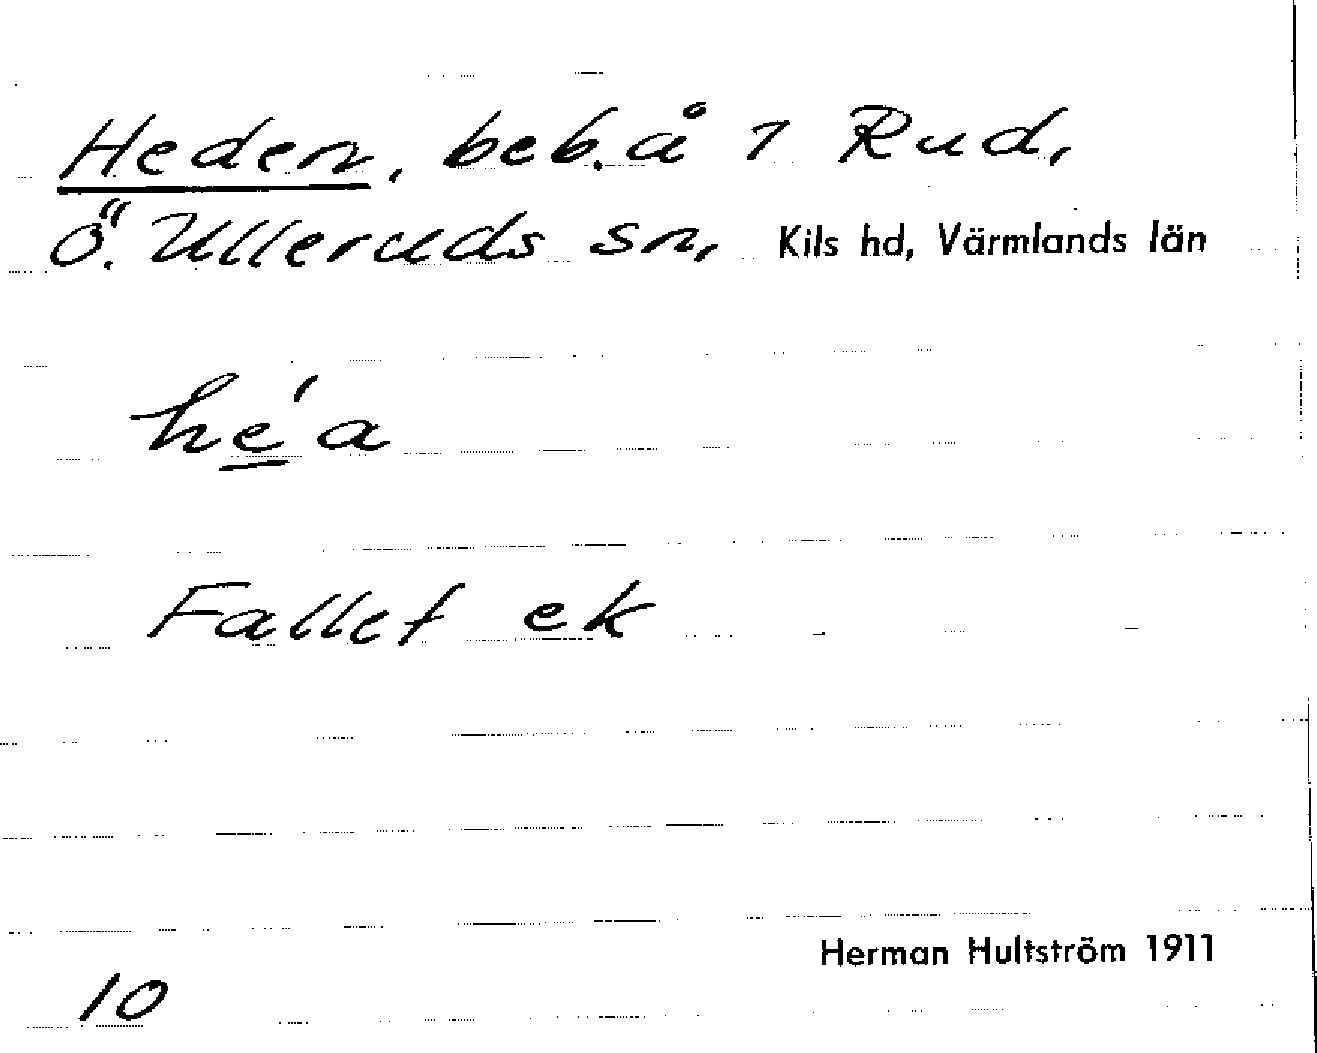 Heden, beb. å 1 Rud,
Ö. Ulleruds sn, Kils hd, Värmlands län
he'a
Fallet ek
Herman Hultström 1911
10